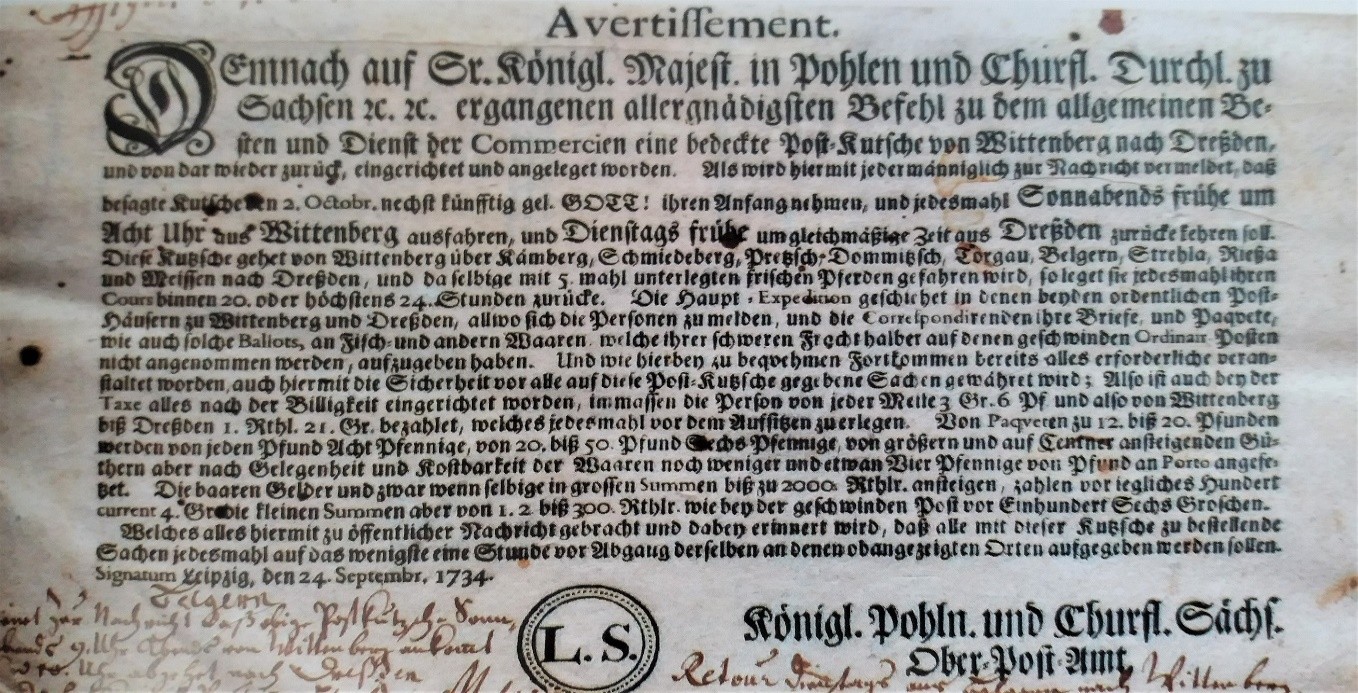 Avertissement.
DEmnach auf Sr. Königl. Majest. in Pohlen und Churfl. Durchl. zu
Sachsen ꝛc. ꝛc. ergangenen allergnädigsten Befehl zu dem allgemeinen Be-
sten und Dienst der Commercien eine bedeckte Post-Kutsche von Wittenberg nach Dreßden,
und von dar wieder zurück, eingerichtet und angeleget worden. Als wird hiermit jedermänniglich zur Nachricht vermeldet, daß
besagte Kutsche den 2. Octobr. nechst künfftig gel. GOTT! ihren Anfang nehmen, und jedesmahl Sonnabends frühe um
Acht Uhr aus Wittenberg ausfahren, und Dienstags frühe um gleichmäßige Zeit aus Dreßden zurücke kehren soll.
Diese Kutzsche gehet von Wittenberg über Kämberg, Schmiedeberg, Pretzsch, Dommitzsch, Torgau, Belgern, Strehla, Rießa
und Meissen nach Dreßden, und da selbige mit 5. mahl unterlegten frischen Pferden gefahren wird, so leget sie jedesmahl ihren
Cours binnen 20. oder höchstens 24. Stunden zurücke. Die Haupt-Expedition geschiehet in denen beyden ordentlichen Post-
Häusern zu Wittenberg und Dreßden, allwo sich die Personen zu melden, und die Correspondirenden ihre Briefe, und Paqvete,
wie auch solche Ballots, an Fisch- und andern Waaren, welche ihrer schweren Fracht halber auf denen geschwinden Ordinair-Posten
nicht angenommen werden, aufzugeben haben. Und wie hierbey zu beqvehmen Fortkommen bereits alles erforderliche veran-
staltet worden, auch hiermit die Sicherheit vor alle auf diese Post-Kutzsche gegebene Sachen gewähret wird; Also ist auch bey der
Taxe alles nach der Billigkeit eingerichtet worden, immassen die Person von jeder Meile 3 Gr. 6 Pf und also von Wittenberg
biß Dreßden 1. Rthl. 21. Gr. bezahlet, welches jedesmahl vor dem Aufsitzen zu erlegen. Von Paqveten zu 12. biß 20. Pfunden
werden von jeden Pfund Acht Pfennige, von 20. biß 50. Pfund Sechs Pfennige, von größern und auf Centner ansteigenden Gü-
thern aber nach Gelegenheit und Kostbarkeit der Waaren noch weniger und etwan Vier Pfennige von Pfund an Porto angese-
tzet. Die baaren Gelder und zwar wenn selbige in grossen Summen biß zu 2000. Rthlr. ansteigen, zahlen vor iegliches Hundert
current 4. Gr. die kleinen Summen aber von 1. 2. biß 300. Rthlr. wie bey der geschwinden Post vor Einhundert Sechs Groschen.
Welches alles hiermit zu öffentlicher Nachricht gebracht und dabey erinnert wird, daß alle mit dieser Kutzsche zu bestellende
Sachen jedesmahl auf das wenigste eine Stunde vor Abgang derselben an denen obangezeigten Orten aufgegeben werden sollen.
Signatum Leipzig, den 24. Septembr. 1734.
L. S.
Königl. Pohln. und Churfl. Sächs.
Ober-Post-Amt.
Belgern
zur Nachricht daß obige Postkutzsche Sonn-
abends 9. Uhr Abends von Wittenberg ankomt
Uhr abgehet nach Dreßden
Retour Dienstags aus Belgern nach Wittenberg